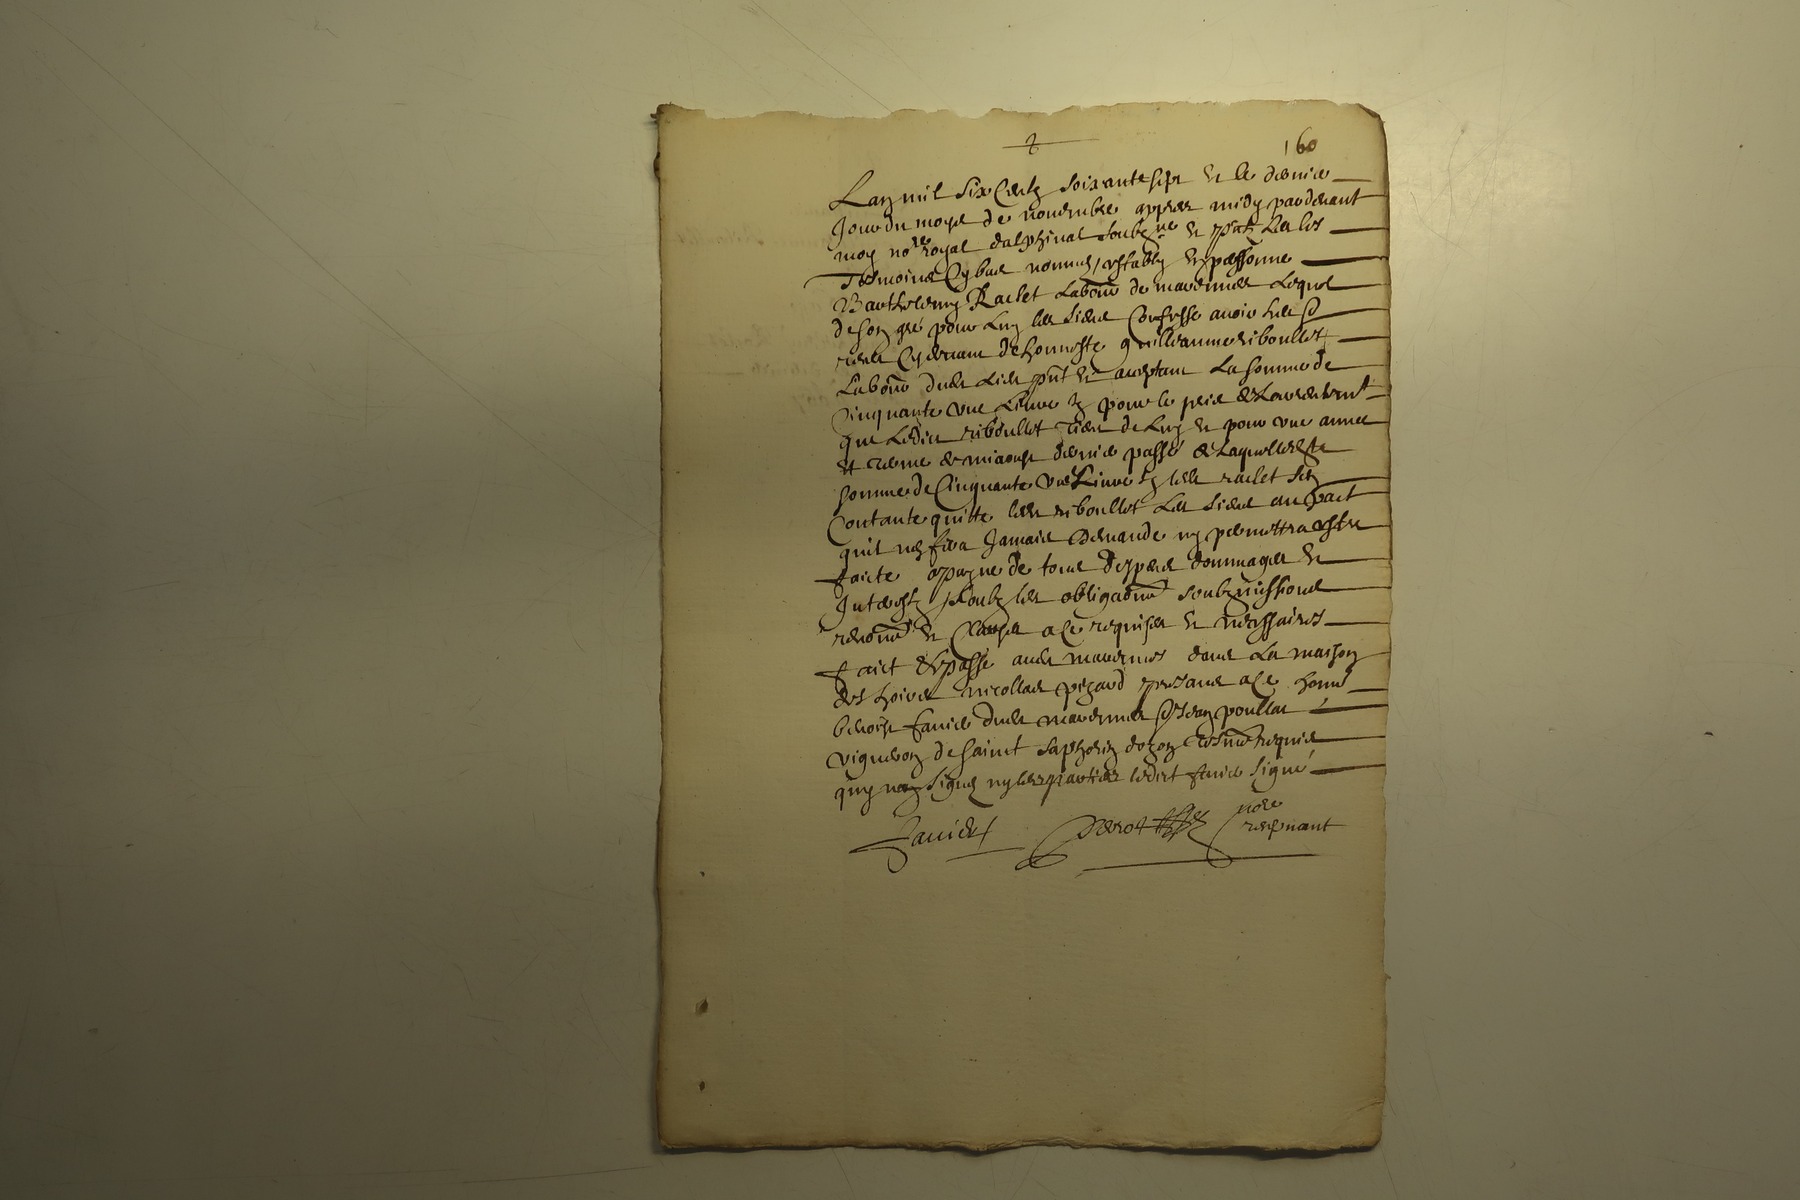 160
Lan mil six centz soixante sept et le dernier
Jour du moys de novembre appres midy pardevant
moy no.re royal dalphinal soubz.ne et pntz les
Tesmoins cy bas nommes, estably en personne
Barthelemy Raclet Labour de marennes Lequel
de son gre pour Luy les siens confesse avoir heu
cy devant de honneste guilleaume riboullet
Labour dud lieu pnt et aceptant La somme de
cinquante une Livre tz pour le pris
que Ledict riboullet de Luy et pour une annee
et miaoust dernier passe de Laquelle
somme de Cinquante une Livre tz led raclet
contant quitte led riboullet Les siens au pact
quil nen fera Jamais demande ny permettra estre
faicte a payne de tous despens dommages et
Interestz soubz les obligaons soubzmissions
renons et clauses a ce requises et necessaires
faict et passe aud marennes dans La maison
des hoirs nicollas pizard presans a ce honn
benoist Janier dud marennes et Jean poullat
vigneron de saint saphorin dozon tesmo requis
quy nez signe ny les parties ledict Janier signe
Janier
no.re
recepvant